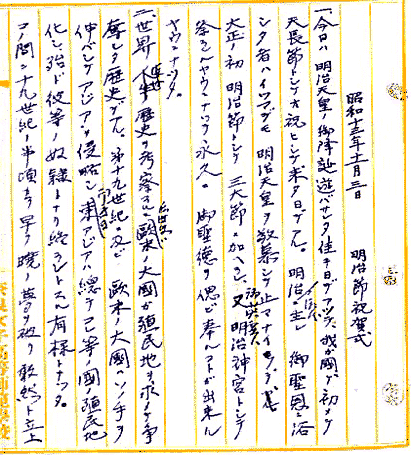 昭和十三年十一月三日　明治節祝賀式
一、今日ハ明治天皇ノ御降誕遊バサレタ佳キ日デアツテ、我ガ國デ初メテ
天長節トシテオ祝ヒシテ来タ日デアル。明治ノ生レ 御聖恩ニ浴
シタ者ハイツマデモ明治天皇ヲ敬慕シテ止マナイ
大正ノ初 明治節トシテ三大節ニ加ヘラレ、又明治神宮トシテ
祭ラルヤウニナツテ永久ニ御聖徳ヲ偲ビ奉ルコトガ出来ル
ヤウニナツタ。
二、世界 歴史ヲ考察スルニ 歐米ノ大國ガ殖民地ヲ求メテ争
奪シタ歴史デアル。第十九世紀ニ及ビ 歐米ノ大國ハソノ手ヲ
伸ベシテアジアヲ侵略シ東アジアハ總テコレ等國殖民地
化シ強ド彼等ノ奴隷トナリ終ラントスル有様トナツタ。
コノ間ニ十九世紀ノ半頃カラ早ク暁ノ夢ヲ破リ敢然ト立上
奈良女子高等師範學校